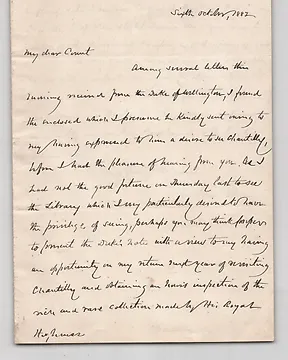 Sixth October, 1882
My dear Count
Among several letters this
morning received from the Duke of Wellington, I found
the enclosed which I presume he kindly sent owing to
my having expressed to him a desire to see Chantilly,
before I had the pleasure of hearing from you. As I
had not the good fortune on Thursday last to see
the Library which I very particularly desired to have
the privilege of seeing, perhaps you may think proper
to present the Duke's note with a view to my having
an opportunity on my return next year of revisiting
Chantilly and obtaining an hour's inspection of the
rich and rare collection made by His Royal
Highness